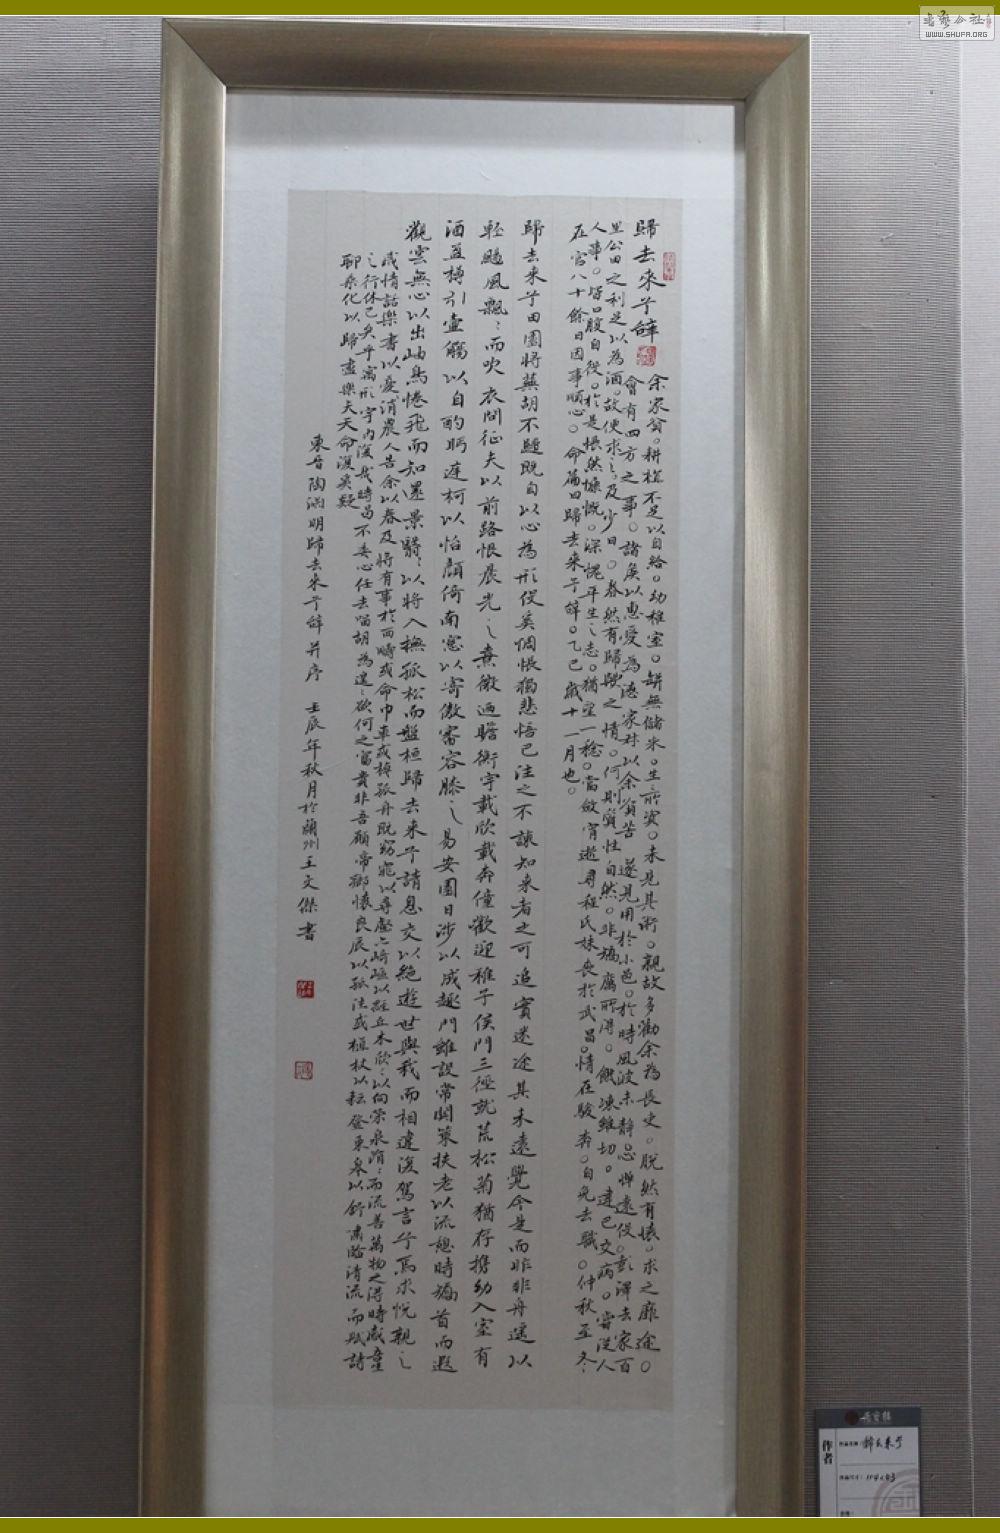 歸去來兮辭
余家貧。耕植不足以自給。幼稚室。缾無儲米。生、所資。未見其術。親故多勸余為長吏。脫然有懷。求之靡途。
會有四方之事。諸侯以惠愛為德家叔以余貧苦遂見用於小邑。於時風波未静。心憚遠役。彭澤去家百
里公田之利足以為酒。故便求之。及少日。眷然有歸歟之情。何則質性自然。非矯厲所得。飢凍雖切。違己交病。嘗從人
人事。皆口腹自役。於是悵然慷慨。深愧平生之志。猶望一稔。當斂宵逝尋程氏妹喪於武昌。情在駿奔。自免去職。仲秋至冬、
在官八十餘日因事順心。命篇曰歸去來兮辭。乙巳歲十一月也。
歸去來兮田園將蕪胡不歸既自以心為形役奚惆悵獨悲悟已往之不諫知來者之可追實迷途其未遠覺今是而昨非舟遥以
輕颺風飄、而吹衣問征夫以前路恨晨光之熹微迺瞻衡宇載欣載奔僮歡迎稚子侯門三徑就荒松菊猶存携幼入室有
酒盈樽引壺觴以自酌眄庭柯以怡顏倚南窓以寄傲審容膝之易安園日涉以成趣門雖設常關策扶老以流憩時矯首而遐
觀雲無心以出岫鳥倦飛而知還景翳、以將入撫孤松而盤桓歸去來兮請息交以絶遊世與我而相違復駕言兮焉求悅親之
戚情話樂書以憂消農人告余以春及將有事於西疇或命巾車或棹孤舟既窈窕以尋壑亦崎嶇以經丘木欣、以向榮泉涓、而流善萬物之得時感童
之行休已矣乎寓形宇内復幾時曷不委心任去留胡為遑、欲何之富貴非吾願帝鄉懷良辰以孤往或植杖以耘登東皋以舒嘯臨清流而賦詩
聊乘化以歸盡樂夫天命復奚疑
東晉陶淵明歸去來兮辭并序 壬辰年秋月於蘭州王文傑書
作者
歸去來兮
WWW.SHUFA.ORG